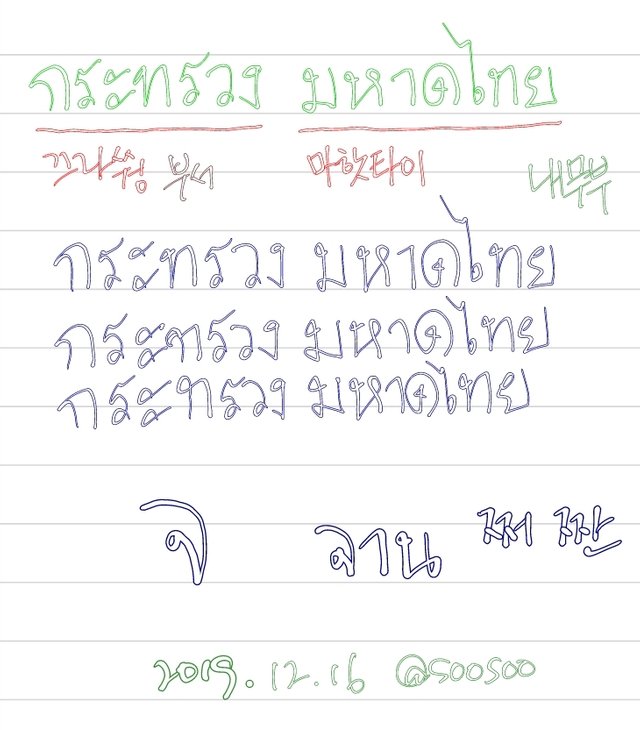 กระทรวง มหาดไทย
끄라쑤엉 부서 마핫타이 내무부
กระทรวง มหาดไทย
กระทรวง มหาดไทย
กระทรวง มหาดไทย
จ จาน 쩌 짠
2019.12.16 @soosoo